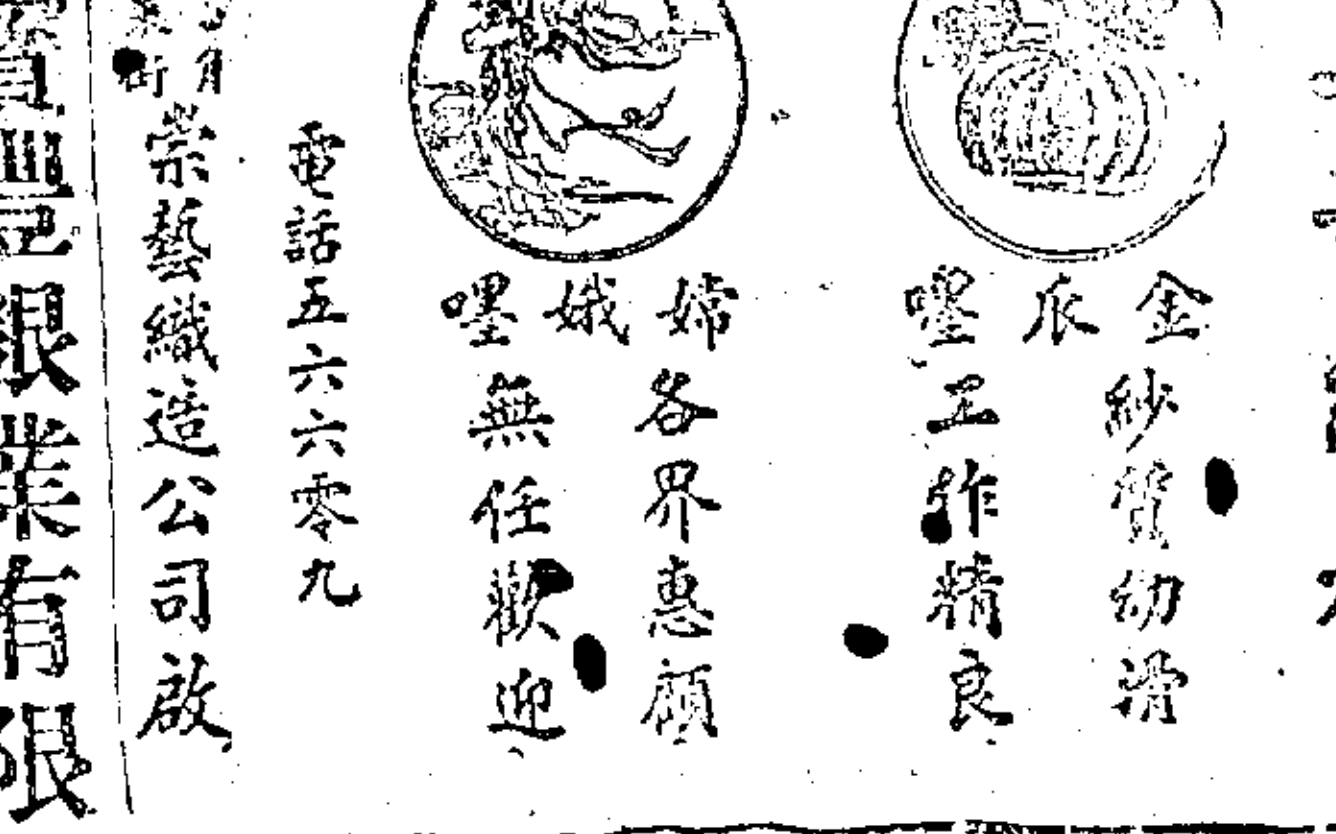 金瓜嘜
紗質幼滑
工作精良
嫦娥嘜
各界惠顧
無任歡迎
電話五六六零九
街
崇藝織造公司啟
銀業有限